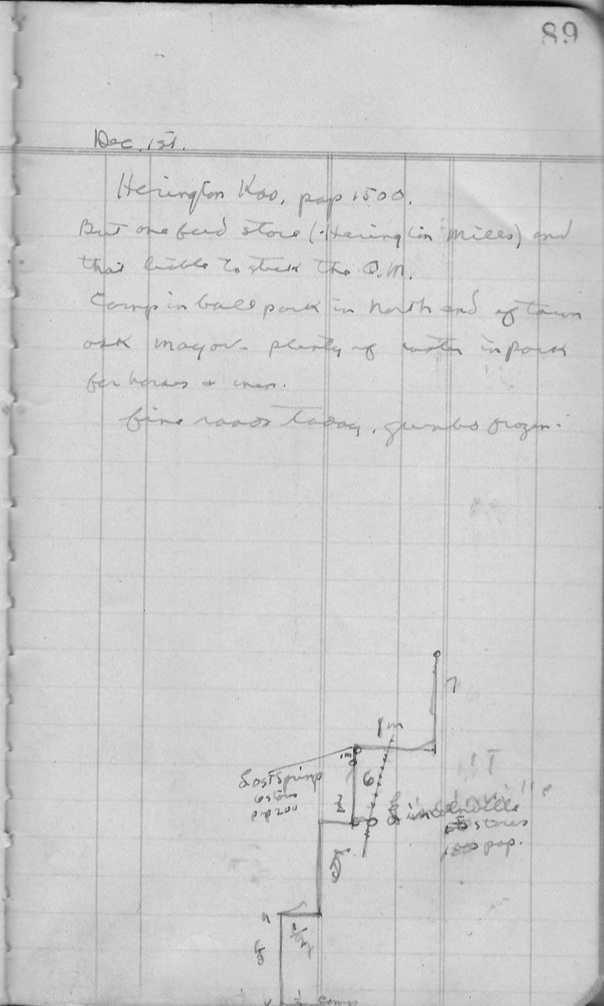 89
Dec. 1st.
Herington Kas, pop 1500.
But one feed store (Herington Mills) and
that liable to stick the Q.M.
Camp in ball park in north end of town
ask mayor - plenty of water in park
for horses & men.
fine roads today, gumbo frozen.
7
1 m
Lost Springs
6 stores
pop 200
1m
6
1/2
Lincolnville
stores
pop.
5
1/2
camp